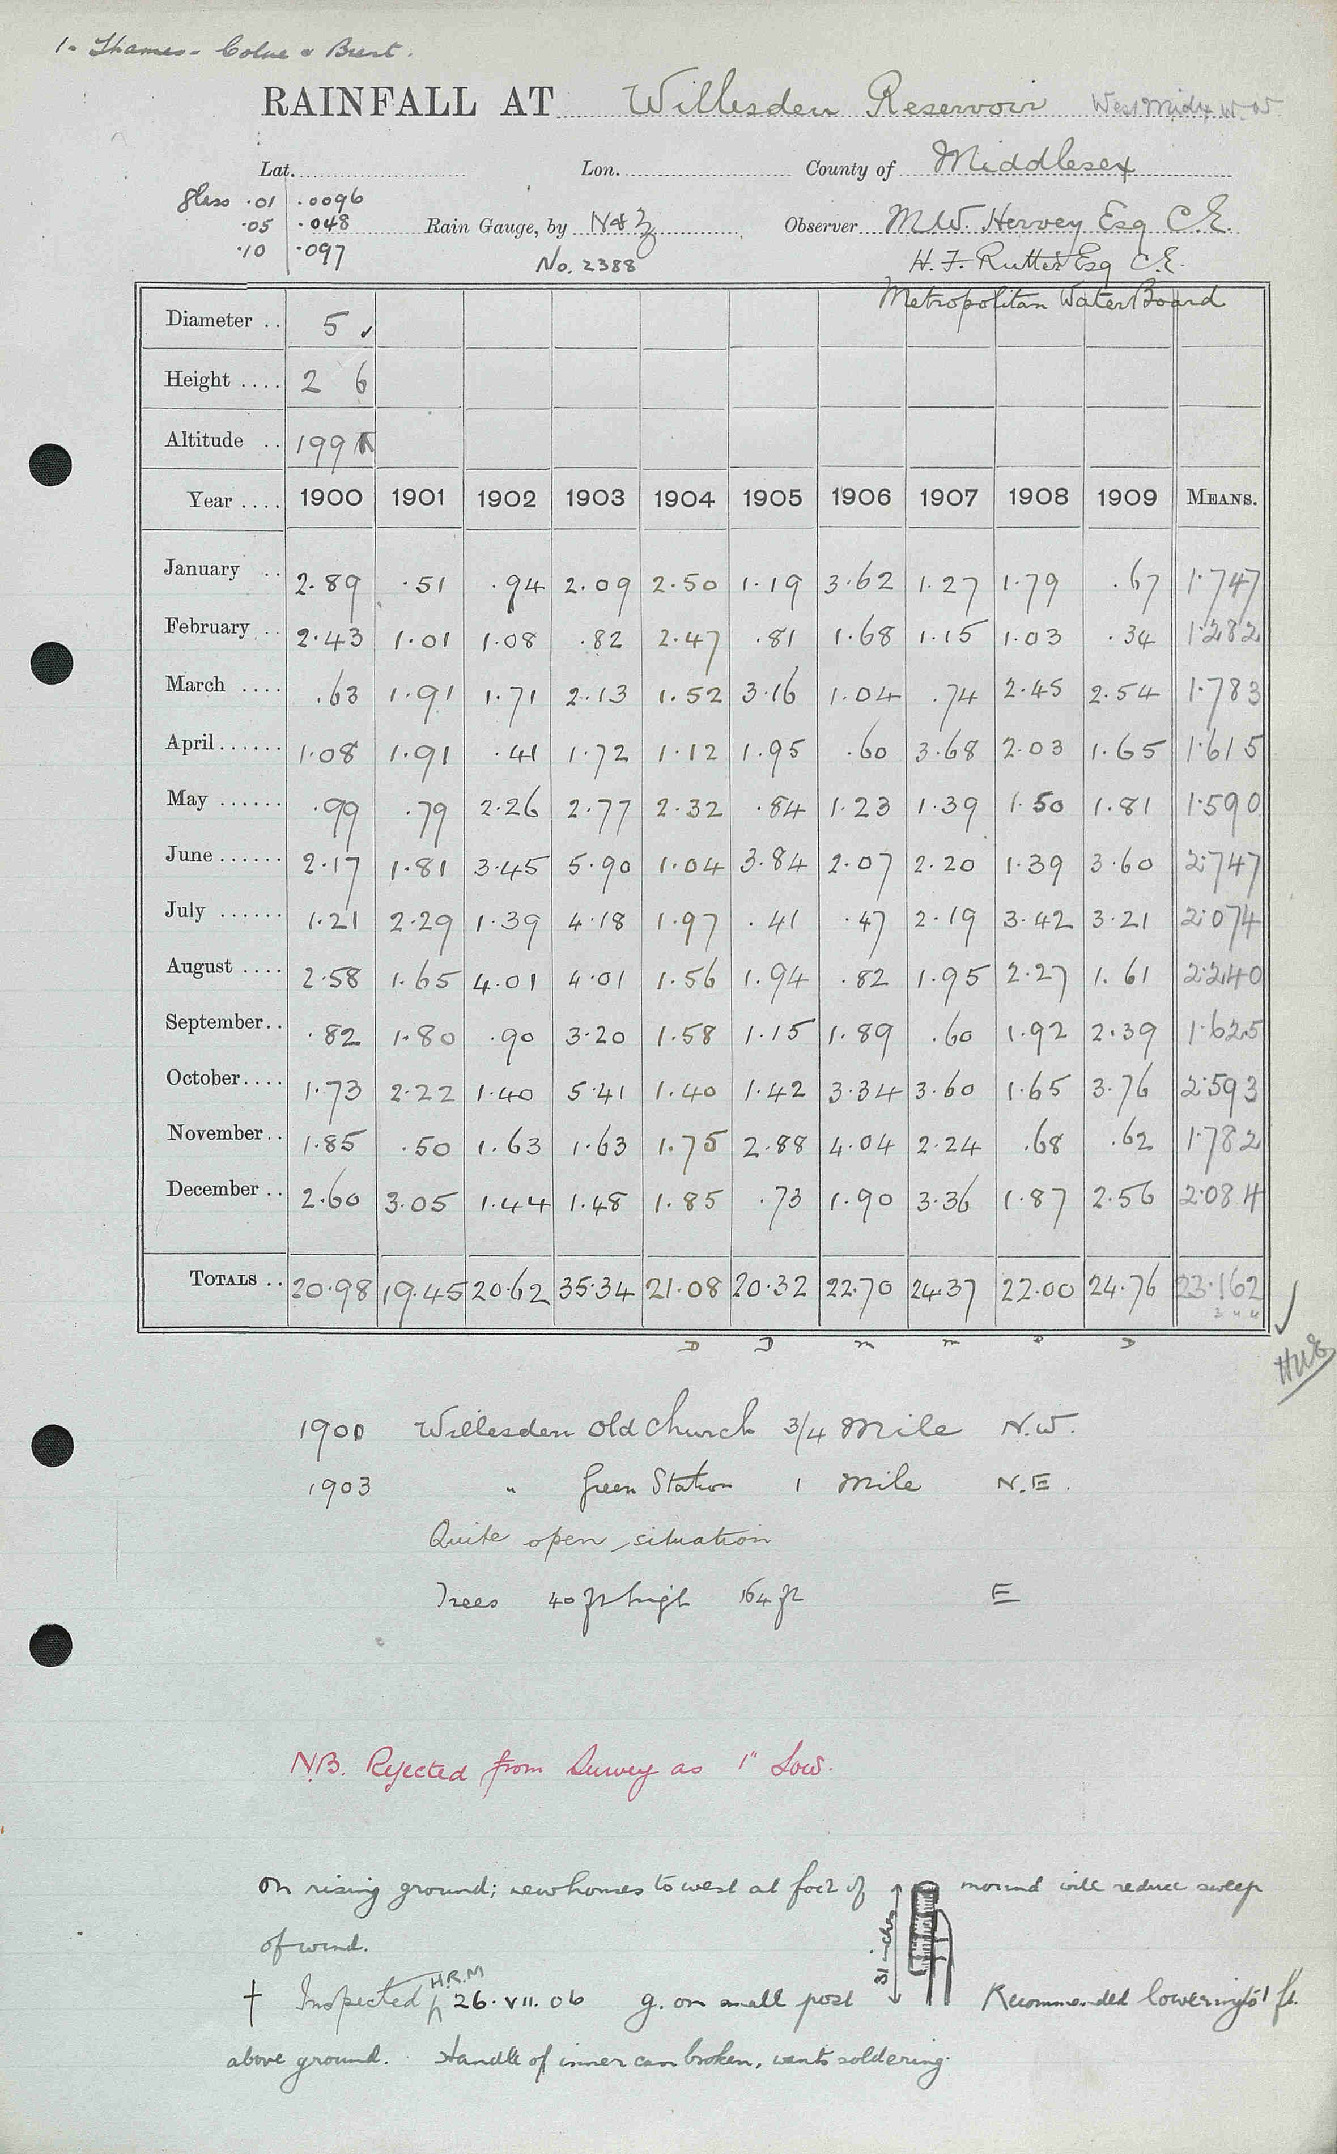 1. Thames - Colne & Brent.
RAINFALL AT Willesden Reservoir West Midx W. W.
Lat. Lon. County of Middlesex
glass .01 .0096
.05 .048 Rain Gauge, by N & Z Observer M.W. Hervey Esq C.E.
.10 .097 No. 2388 H. F. Rutter Esq C.E.
Metropolitan Water Board
Diameter .. 5
Height .... 2 6
Altitude .. 199
Year .... 1900 1901 1902 1903 1904 1905 1906 1907 1908 1909 MEANS.
January .. 2.89 .51 .94 2.09 2.50 1.19 3.62 1.27 1.79 .67 1.747
February .. 2.43 1.01 1.08 .82 2.47 .81 1.68 1.15 1.03 .34 1.282
March .... .63 1.91 1.71 2.13 1.52 3.16 1.04 .74 2.45 2.54 1.783
April ...... 1.08 1.91 .41 1.72 1.12 1.95 .60 3.68 2.03 1.65 1.615
May ...... .99 .79 2.26 2.77 2.32 .84 1.23 1.39 1.50 1.81 1.590
June ...... 2.17 1.81 3.45 5.90 1.04 3.84 2.07 2.20 1.39 3.60 2.747
July ...... 1.21 2.29 1.39 4.18 1.97 .41 .47 2.19 3.42 3.21 2.074
August .... 2.58 1.65 4.01 4.01 1.56 1.94 .82 1.95 2.27 1.61 2.240
September .. .82 1.80 .90 3.20 1.58 1.15 1.89 .60 1.92 2.39 1.625
October .... 1.73 2.22 1.40 5.41 1.40 1.42 3.34 3.60 1.65 3.76 2.593
November .. 1.85 .50 1.63 1.63 1.75 2.88 4.04 2.24 .68 .62 1.782
December .. 2.60 3.05 1.44 1.48 1.85 .73 1.90 3.36 1.87 2.56 2.084
TOTALS .. 20.98 19.45 20.62 35.34 21.08 20.32 22.70 24.37 22.00 24.76 23.162
D D m m D
1900 Willesden Old Church 3/4 Mile N.W.
1903 " Green Station 1 Mile N.E.
Quite open situation
Trees 40 ft high 164 ft E
N.B. Rejected from Survey as 1" Low.
On rising ground; new houses to west at foot of mound will reduce sweep
of wind.
31 inches
† Inspected by H.R.M 26.VII.06 g. on small post Recommended lowering to 1 ft.
above ground. Handle of inner can broken, wants soldering.